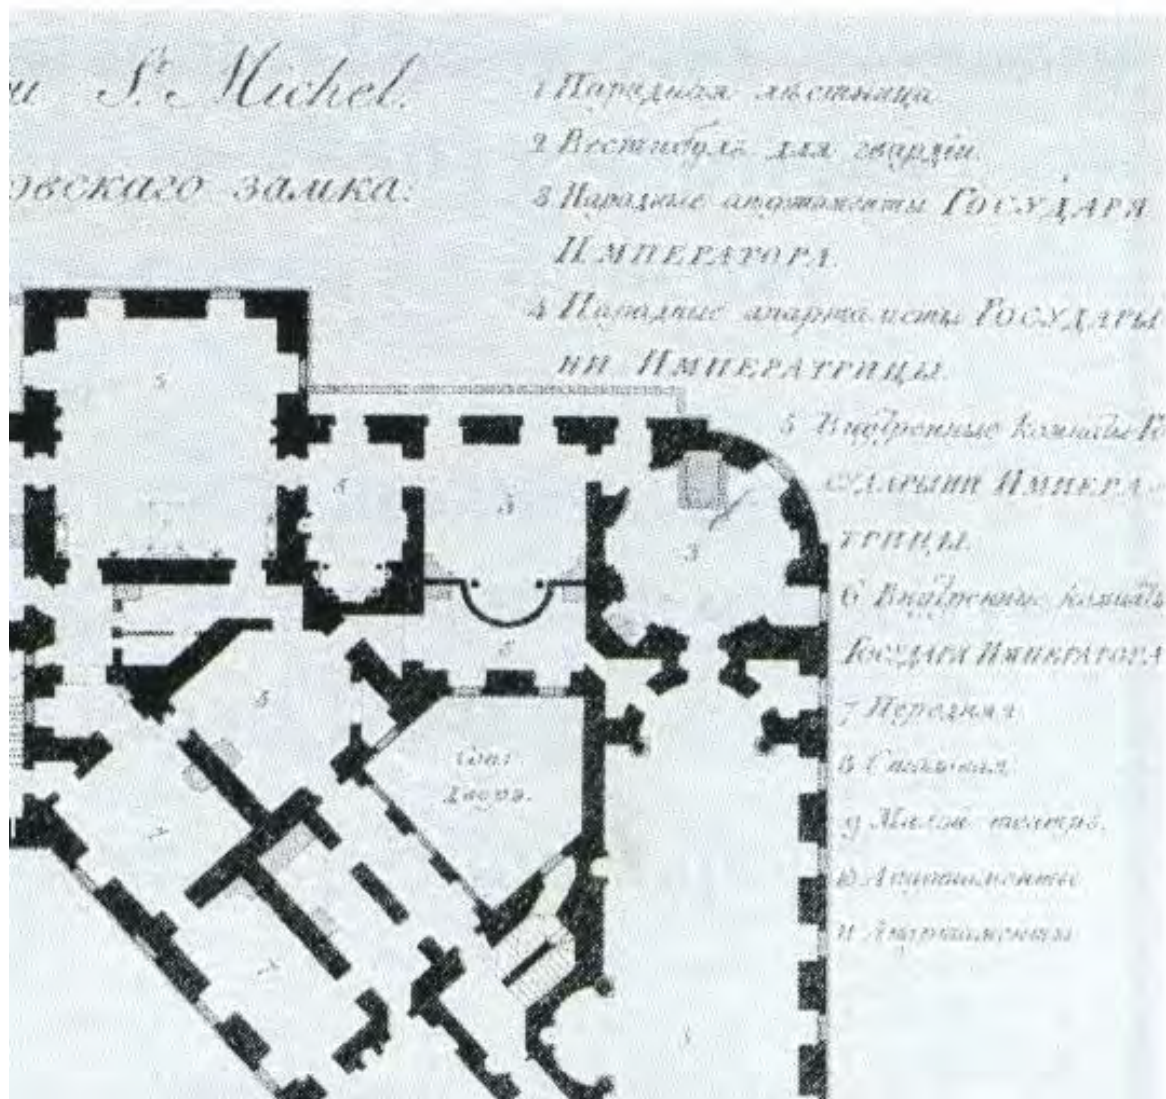 St. Michel.
овскаго замка:
1 Парадная лѣстница
2 Вестибуль для гвардіи.
3 Парадные апартаменты ГОСУДАРЯ
ИМПЕРАТОРА.
4 Парадные апартаменты ГОСУДАРЫ
НИ ИМПЕРАТРИЦЫ.
5 Внутренные комнаты ГО
СУДАРЫНИ ИМПЕРА-
ТРИЦЫ.
6 Внутренные комнаты
ГОСУДАРЯ ИМПЕРАТОРА
7 Передняя
8 Спальная
9 Малой театръ.
10 Апартаменты
11 Апартаменты
5
3
3
Двора.